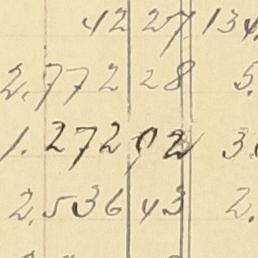 42 27 134.
2.772 28 5.
1.272 92 3.
2.536 43 2.